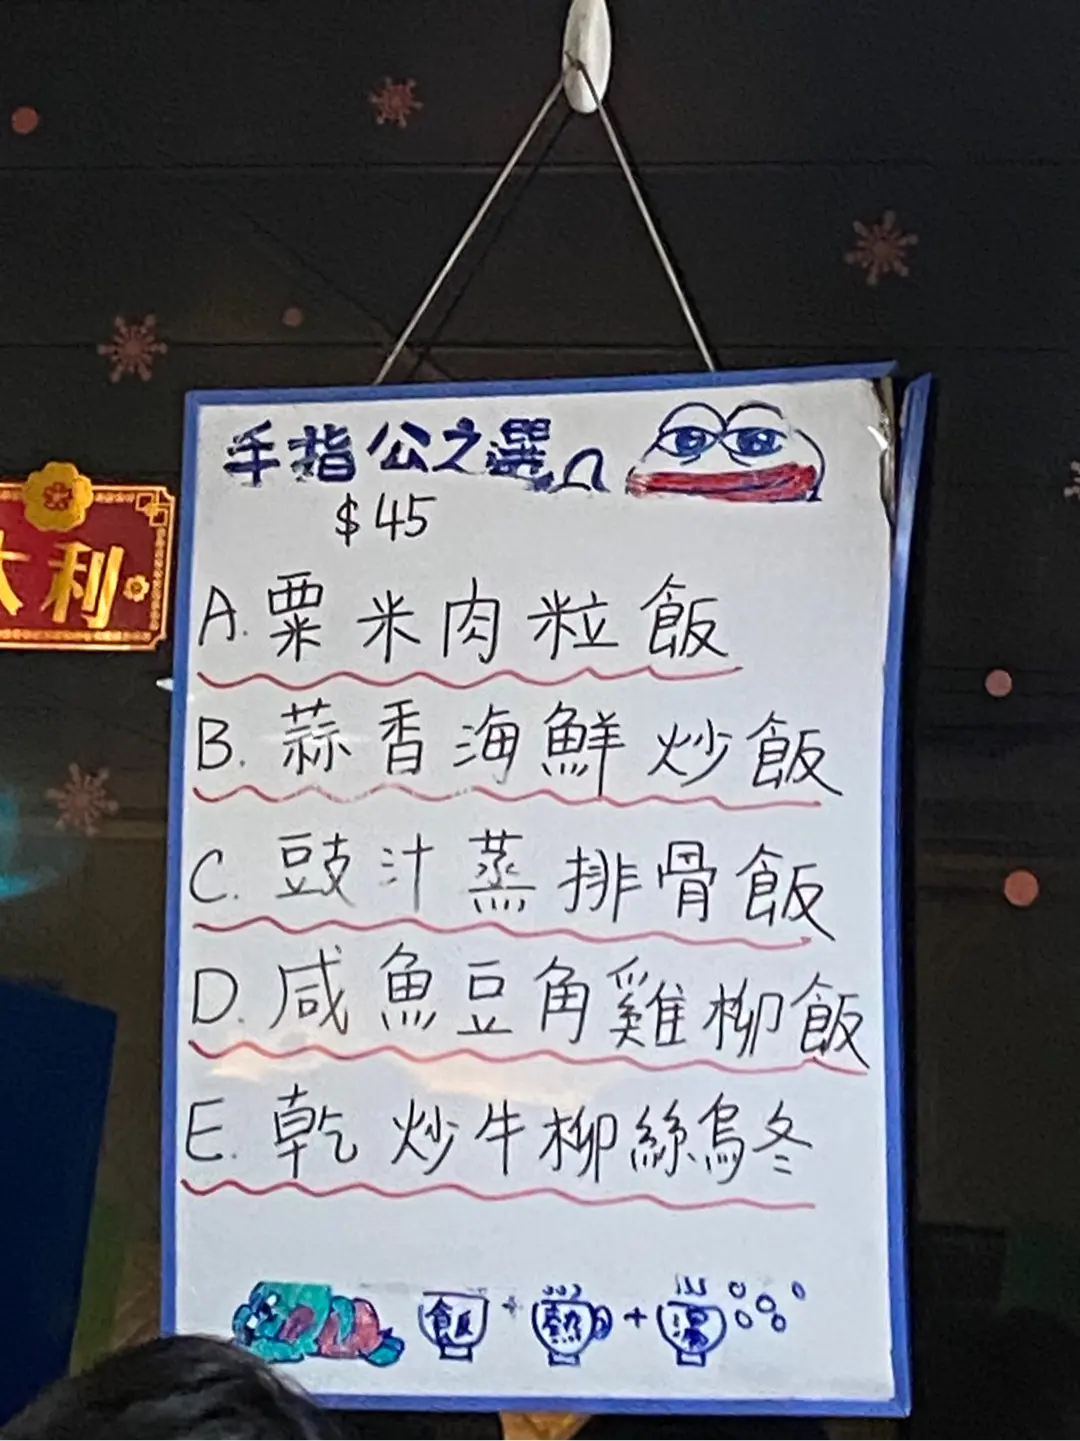 手指公之選
$45
A. 粟米肉粒飯
B. 蒜香海鮮炒飯
C. 豉汁蒸排骨飯
D. 咸魚豆角雞柳飯
E. 乾炒牛柳絲烏冬
飯 + 熱 + 湯
利